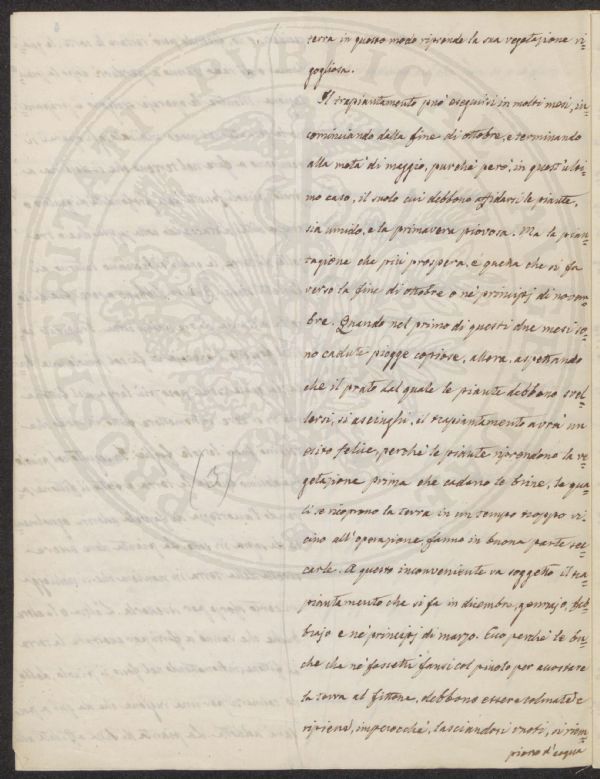 terra in questo modo riprende la sua vegetazione ri-
gogliosa.
Il trapiantamento può eseguirsi in molti mesi, in-
cominciando dalla fine di ottobre, e terminando
alla metà di maggio, purchè però, in quest'ulti-
mo caso, il suolo cui debbono affidarsi le piante,
sia umido, e la primavera piovosa. Ma la pian-
tagione che più prospera, e quella che si fa
verso la fine di ottobre o nè principj di novem-
bre. Quando nel primo di questi due mesi so-
no cadute piogge copiose, allora, aspettando
che il prato dal quale le piante debbono svel-
lersi, si asciughi, il trapiantamento avrà un
esito felice, perchè le piante riprendono la ve-
getazione prima che cadano le brine, le qua-
li se ricoprono la terra in un tempo troppo vi-
cino all'operazione, fanno in buona parte sec-
carle. A questo inconveniente va soggetto il tra-
piantamento che si fa in dicembre, gennajo, feb-
brajo e nè principj di marzo. Ecco perchè le bu-
che che nè fossetti fansi col piuolo per accostare
la terra al fittone, debbono essere colmate e
ripiene, imperocchè, lasciandosi vuoti, si riem-
piono d'acqua
(5)
PROSPERITATI PUBLICAE